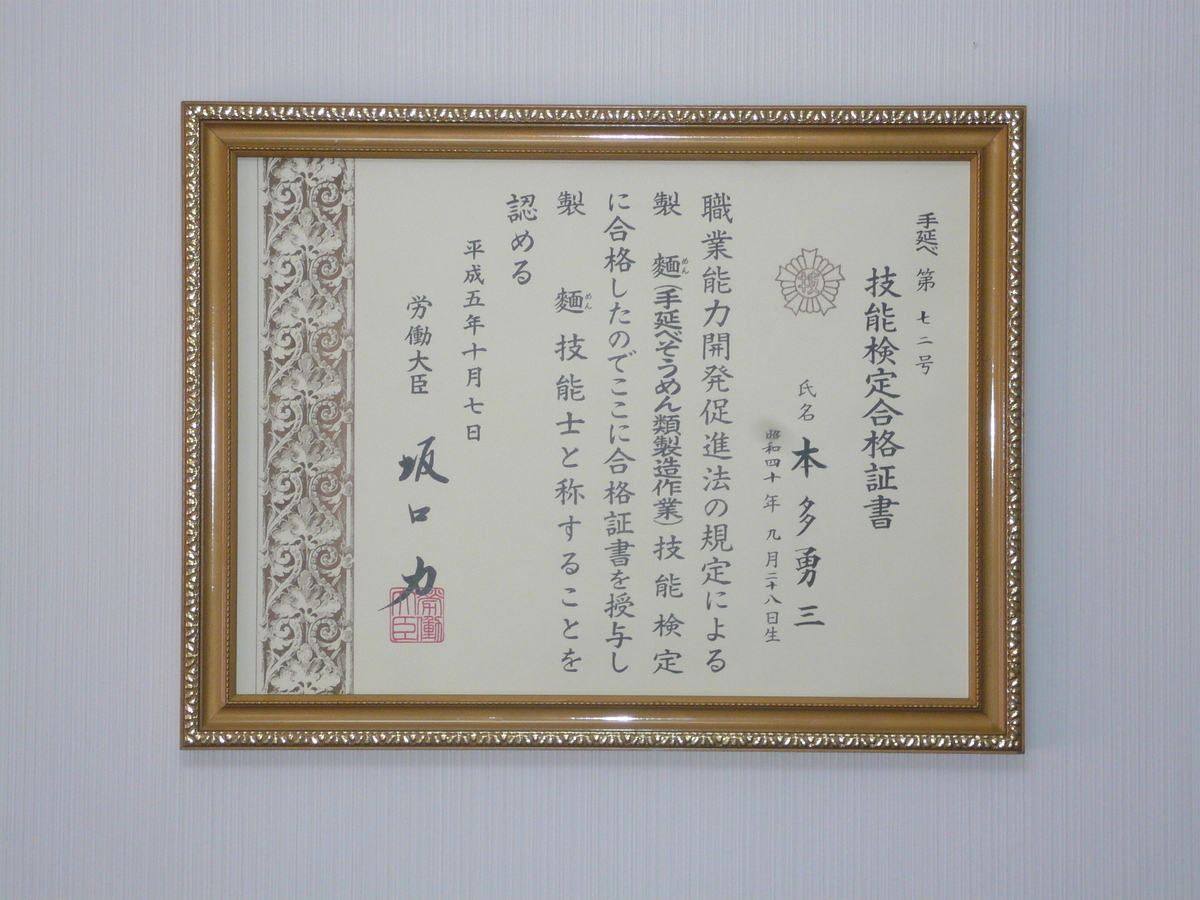 手延べ 第七二号
技能検定合格証書
技
氏名 本多勇三
昭和四十年九月二十八日生
職業能力開発促進法の規定による
製麺(手延べそうめん類製造作業)技能検定
めん
に合格したのでここに合格証書を授与し
製麺技能士と称することを
めん
認める
平成五年十月七日
労働大臣 坂口力
労働大臣